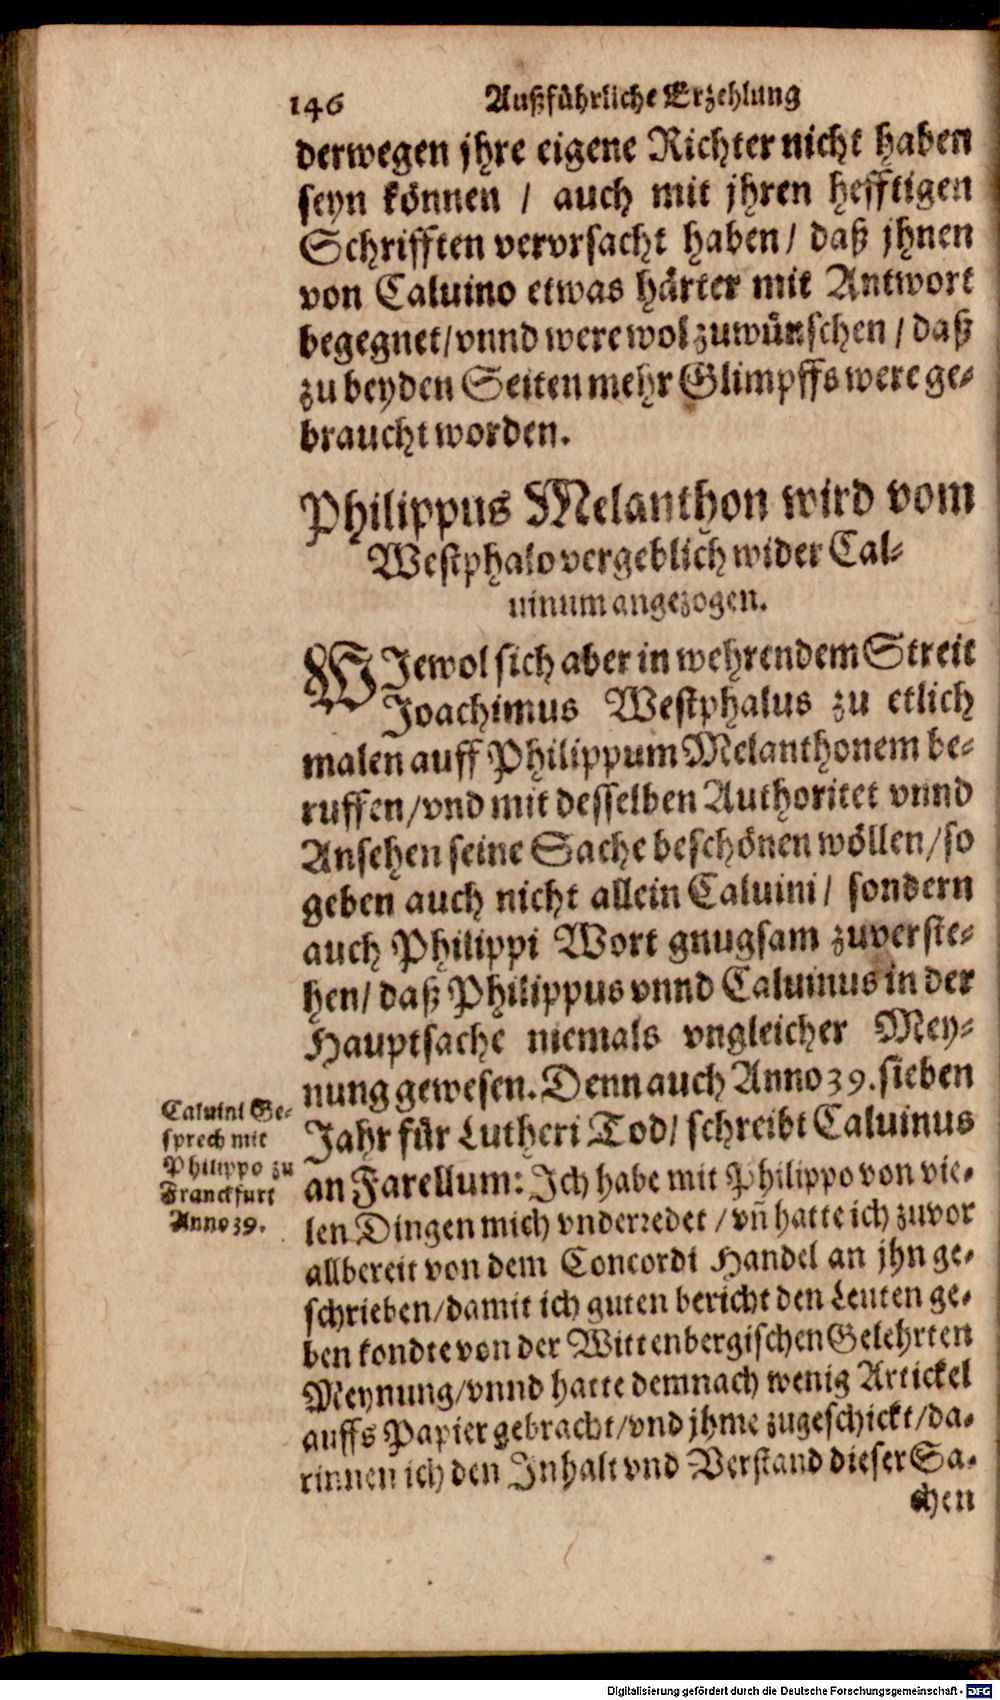 146 Außführliche Erzehlung
derwegen jhre eigene Richter nicht haben
seyn können / auch mit jhren hefftigen
Schrifften vervrsacht haben / daß jhnen
von Caluino etwas härter mit Antwort
begegnet / vnnd were wol zuwünschen / daß
zu beyden Seiten mehr Glimpffs were ge-
braucht worden.
Philippus Melanthon wird vom
Westphalo vergeblich wider Cal-
uinum angezogen.
WJewol sich aber in wehrendem Streit
Joachimus Westphalus zu etlich
malen auff Philippum Melanthonem be-
ruffen / vnd mit desselben Authoritet vnnd
Ansehen seine Sache beschönen wöllen / so
geben auch nicht allein Caluini / sondern
auch Philippi Wort gnugsam zuverste-
hen / daß Philippus vnnd Caluinus in der
Hauptsache niemals vngleicher Mey-
nung gewesen. Denn auch Anno 39. sieben
Jahr für Lutheri Tod / schreibt Caluinus
an Farellum: Jch habe mit Philippo von vie-
len Dingen mich vnderredet / vñ hatte ich zuvor
allbereit von dem Concordi Handel an jhn ge-
schrieben / damit ich guten bericht den Leuten ge-
ben kondte von der Wittenbergischen Gelehrten
Meynung / vnnd hatte demnach wenig Artickel
auffs Papier gebracht / vnd jhme zugeschickt / da-
rinnen ich den Jnhalt vnd Verstand dieser Sa-
chen
Caluini Ge-
sprech mit
Philippo zu
Franckfurt
Anno 39.
Digitalisierung gefördert durch die Deutsche Forschungsgemeinschaft - DFG